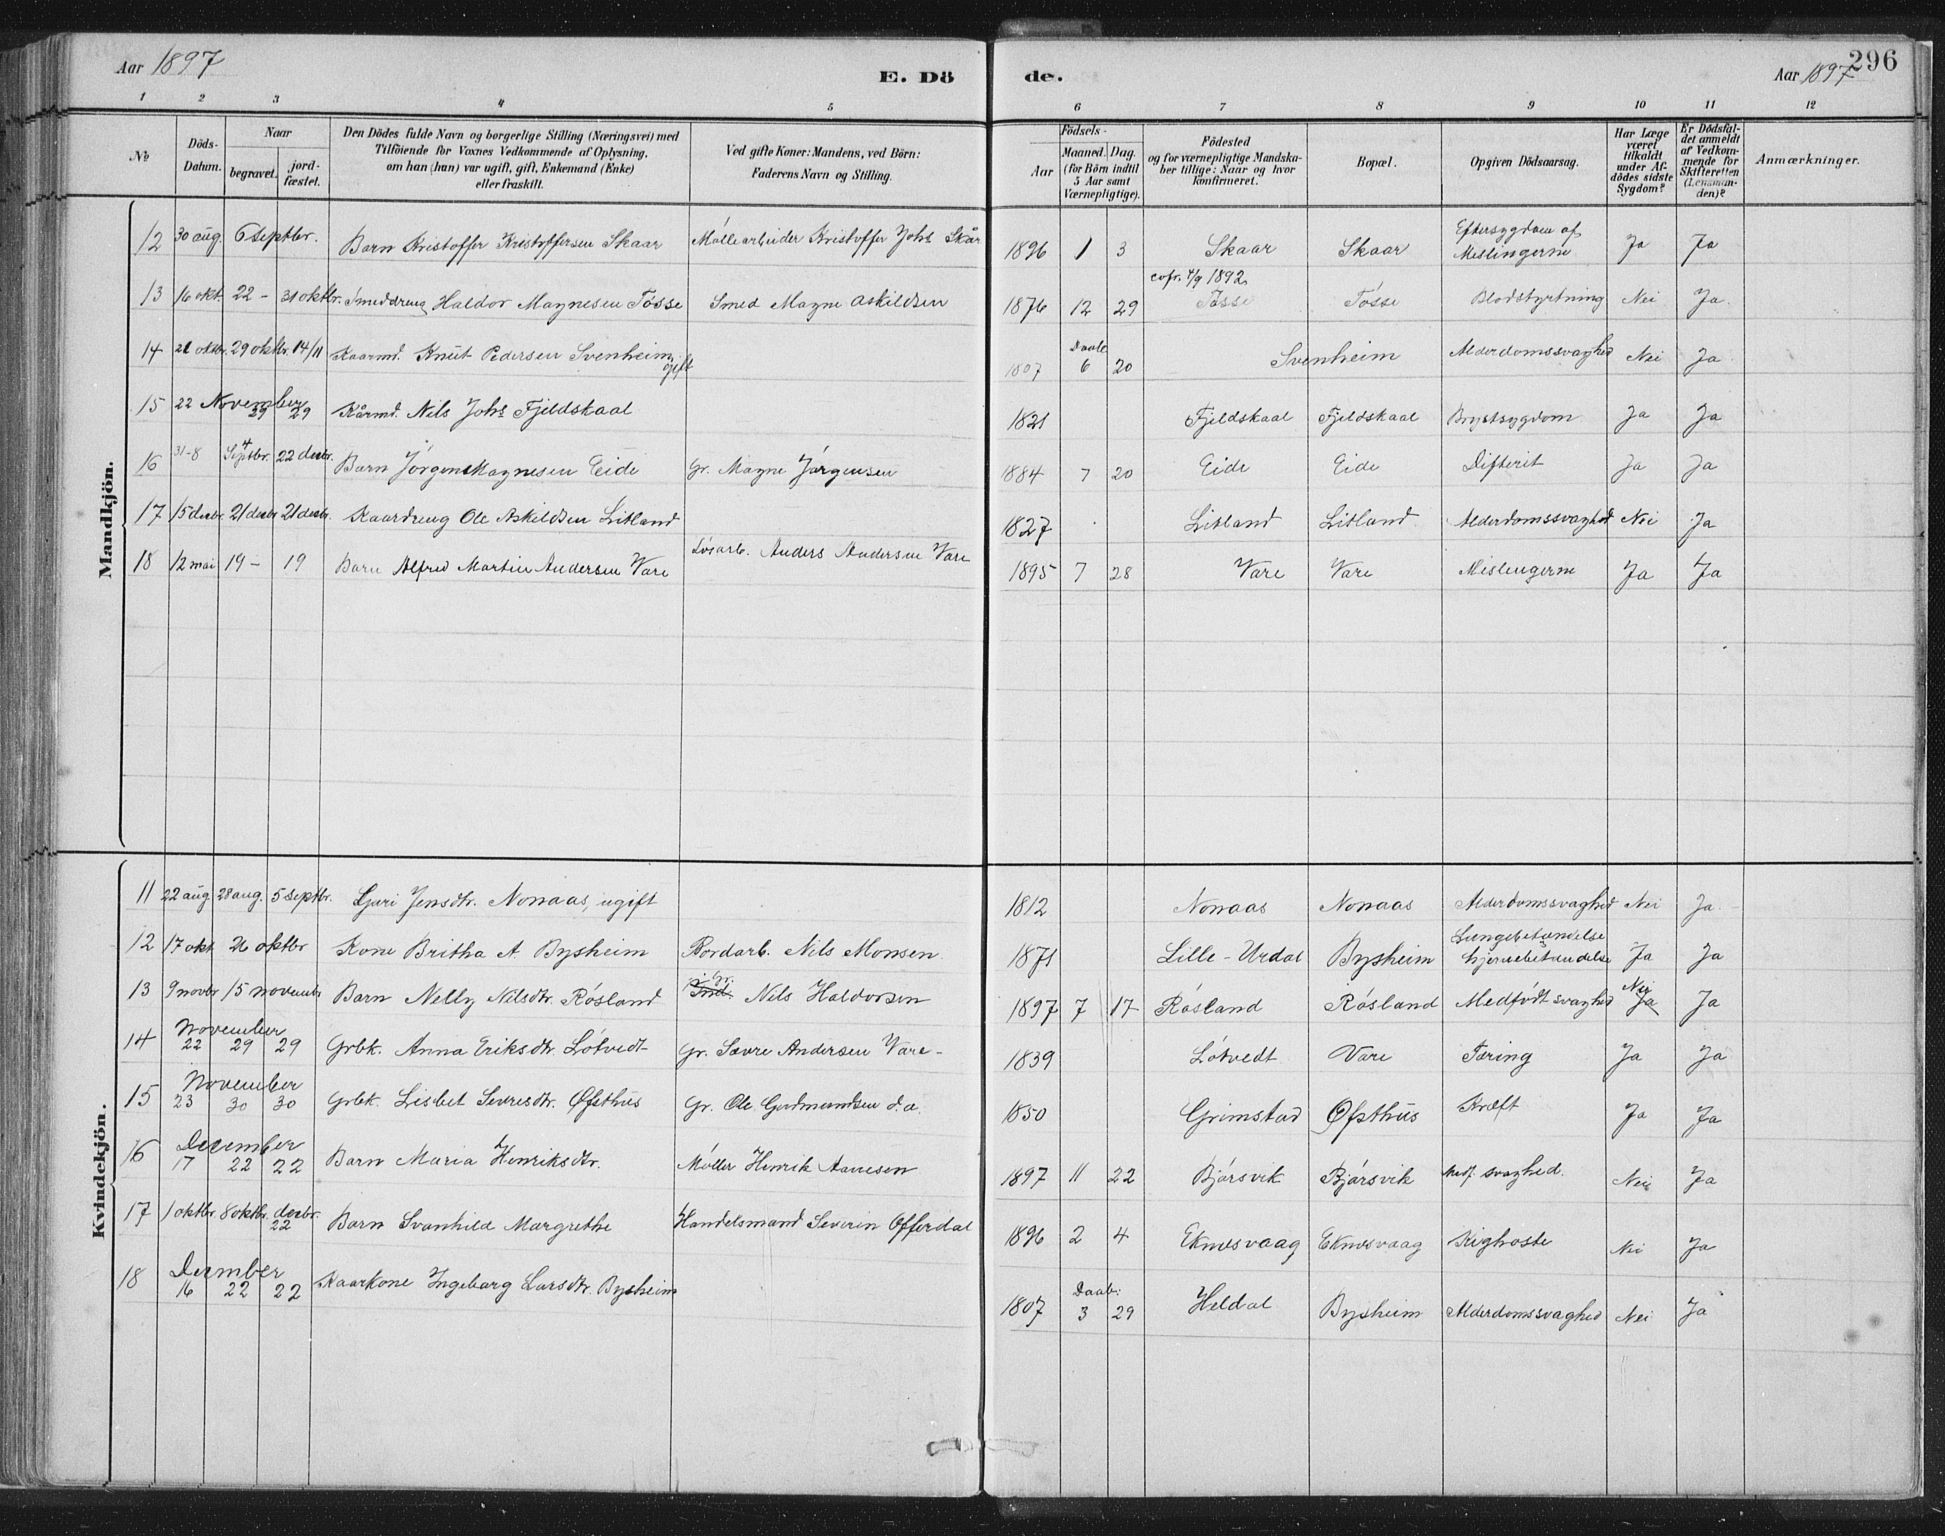 Aar 1897 E. Dö de. Aar 1897 296
1 2 3 4 5 6 7 8 9 10 11 12
№ Döds-Datum. Naar begravet. jordfæstet. Den Dödes fulde Navn og borgerlige Stilling (Næringsvei) med Tilföiende for Voxnes Vedkommende af Oplysning, om han (hun) var ugift, gift, Enkemand (Enke) eller fraskilt. Ved gifte Koner: Mandens, ved Börn: Faderens Navn og Stilling. Födsels- Aar Maaned. Dag. (for Børn indtil 5 Aar samt Værnepligtige). Födested og for værnepligtige Mandskaber tillige: Naar og hvor konfirmeret. Bopæl. Opgiven Dödsaarsag. Har Læge været tilkaldt under Afdödes sidste Sygdom? Er Dödsfaldet anmeldt af Vedkommende for Skifteretten (Lensmanden)? Anmærkninger.
Mandkjön.
12 30 aug. 6 Septbr. Barn Kristoffer Kristoffersen Skaar Möllearbeider Kristoffer Johs Skår 1896 1 3 Skaar Skaar Eftersygdom af Meslingerne Ja Ja
13 16 okt. 22 - 31 oktbr. Smeddreng Haldor Magnesen Tøsse Smed Magne Askildsen 1876 12 29 cofr. 4/9 1892 Tøsse Tøsse Blodstyrtning Nei Ja.
14 21 oktbr. 29 oktbr. 14/11 Kaarmd. Knut Pedersen Svenheim, gift 1807 Daab 6 20 Svenheim Alderdomssvaghed Nei Ja
15 22 November 29 29 Kårmd. Nils Johs Fjeldskaal 1821 Fjeldskaal Fjeldskaal Brystsygdom Ja Ja
16 31-8 4 Septbr. 22 decbr. Barn Jørgen Magnesen Eide Gr. Magne Jørgensen 1884 7 20 Eide Eide Difterit Ja Ja
17 15 decbr. 21 decbr 21 decbr. Kaardreng Ole Askildsen Litland 1827 Litland Litland Alderdomssvaghed Nei Ja
18 12 mai 19 - 19 Barn Alfred Martin Andersen Vare Løsarb. Anders Andersen Vare 1895 7 28 Vare Vare Meslingerne Ja Ja
Kvindekjön.
11 22 aug 28 aug. 5 septbr. Guri Jensdtr. Nonaas, ugift 1812 Nonaas Nonaas Alderdomssvaghed Nei Ja.
12 17 okt 26 oktbr Kone Britha A. Bysheim Bordarb. Nils Monsen 1871 Lille-Urdal Bysheim Lungebetændelse hjernebetændelse Ja Ja
13 9 novbr 15 novembr Barn Nelly Nilsdtr. Røsland Gr. Nils Haldorsen 1897 7 17 Røsland Røsland Medfødt svaghed Nei Ja Ja
14 November 22 29 29 Grbk. Anna Eriksdtr. Løtvedt Gr. Sævre Andersen Vare - 1839 Løtvedt Vare Tæring Ja Ja
15 November 23 30 30 Grbk. Lisbet Seversdtr. Øfsthus Gr. Ole Gudmundsen d.a. 1850 Grimstad Øfsthus Kræft Ja Ja
16 December 17 22 22 Barn Maria Henriksdtr. Møller Henrik Aanesen 1897 11 22 Bjørsvik Bjørsvik Medf. svaghed. Nei Ja
17 1 oktbr. 8 oktbr. decbr. 22 Barn Svanhild Margrethe Handelsmand Severin Offerdal 1896 2 4 Eknesvaag Eknesvaag Kighoste Nei Ja
18 December 16 22 22 Kaarkone Ingeborg Larsdtr. Bysheim 1807 Daab: 3 29 Heldal Bysheim Alderdomssvaghed Nei Ja